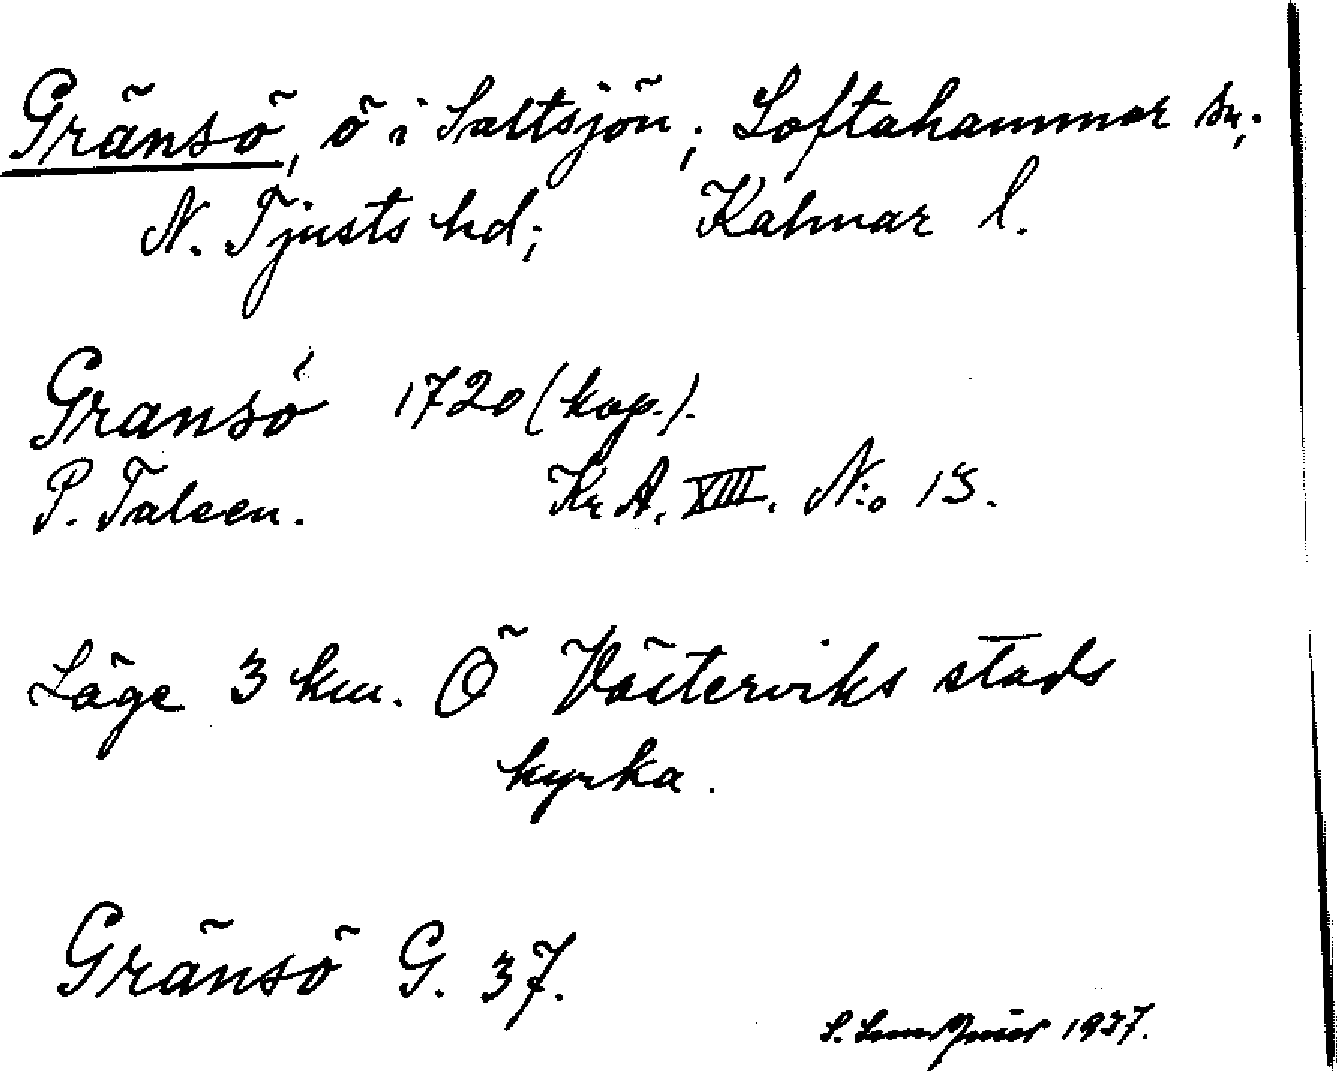 Gränsö, ö i Saltsjön; Loftahammar sn;
N. Tjusts hd; Kalmar l.
Gransö 1720 (kop.).
P. Taleen. Kr A. XIII. N:o 13.
Läge 3 km. Ö Västerviks stads
kyrka.
Gränsö G. 37.
S. 1937.